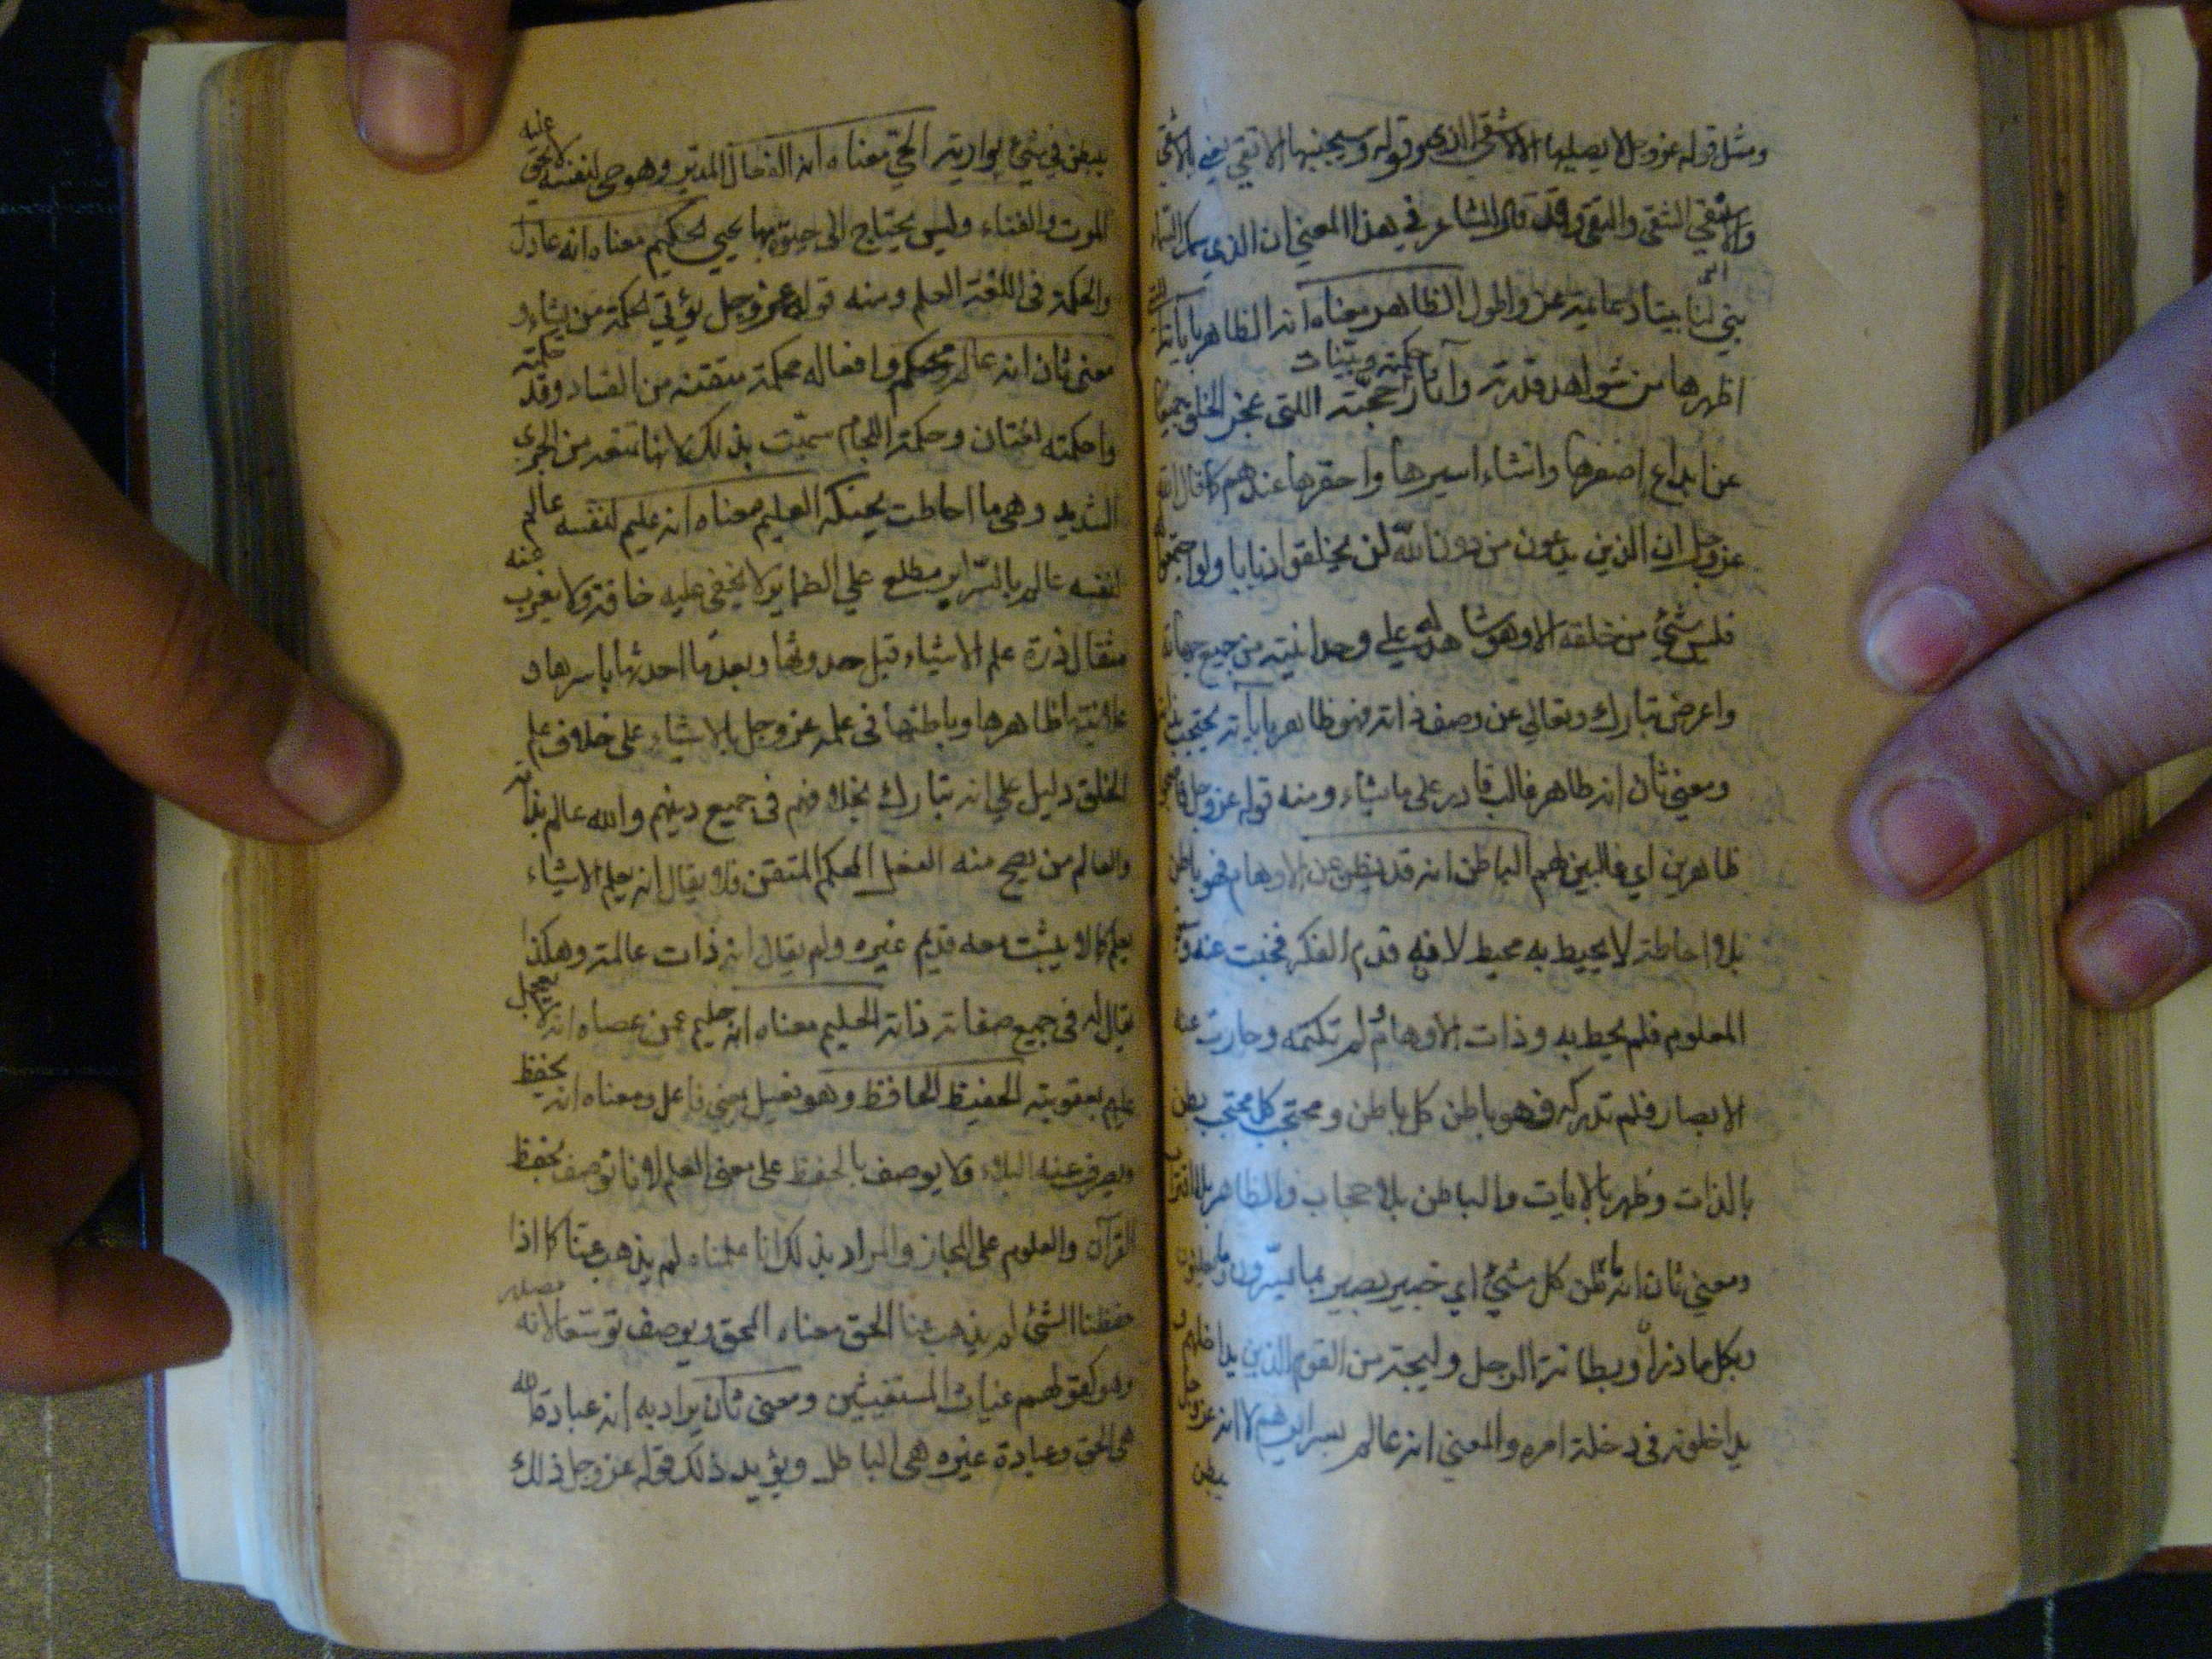 ومثل قوله عزوجل لا يصليها الا الاشقى الذي وقوله وسيجنبها الاتقى يعني بالاشقى
والاتقى الشقي والتقي وقد قال الشاعر في هذا المعنى ان الذي سمك السماء
بنى لنا بيتا دعائمه عز واطول الظاهر معناه انه الظاهر باياته التي
اظهرها من شواهد قدرته وآثار حكمته وبينات حجته اللتي عجز الخلق جميعا
عن ابداع اصغرها وانشاء اسيرها واحقرها عندهم كما قال الله
عزوجل ان الذين يدعون من دون الله لن يخلقوا ذبابا ولو اجتمعوا له
فليس شئ من خلقه الا وهو شاهد له علي وحدانيته من جميع جهاته
واعرض تبارك وتعالي عن وصف ذاته فهو ظاهر باياته محتجب بذاته
ومعنى ثان انه ظاهر غالب قادر على ما يشاء ومنه قوله عزوجل فاصبحوا
ظاهرين اي غالبين لهم الباطن انه قد بطن عن الاوهام فهو باطن
بلا احاطة لا يحيط به محيط لانه قدم الفكر فخبت عنه و
المعلوم فلم يحيط به وذات الاوهام لم تكتمه وحارت عنه
الابصار فلم تدركه فهو باطن كل باطن ومحتجب كل محتجب بطن
بالذات وظهر بالايات والباطن بلا حجاب والظاهر بلا اقتراب
ومعني ثان انه باطن كل شئ اي خبير بصير بما يسرون وما يعلنون
وبكل ما ذرأ وبطانة الرجل وليجته من القوم الذين يداخلهم و
يداخلونه في دخلة امره والمعني انه عالم بسرايرهم لا انه عزوجل
يبطن
يبطن في شئ يواريه الحي معناه انه الفعال المدبر وهو حي لنفسه لا يجوز عليه
الموت والفناء وليس يحتاج الى حيوة بها يحيي الحكيم معناه انه عادل
والحكمة في اللغة العلم ومنه قوله عزوجل يؤتي الحكمة من يشاء و
معنى ثان انه عالم محكم وافعاله محكمة متقنة من الفساد وقد حكمته
واحكمته لغتان وحكمة اللجام سميت بذلك لانها تمنعه من الجري
الشديد وهي ما احاطت بحنكه العليم معناه انه عليم لنفسه عالم
لنفسه عالم بالسراير مطلع علي الضماير لا يخفى عليه خافية ولا يعزب عنه
مثقال ذرة علم الاشياء قبل حدوثها وبعد ما احدثها باسرها و
علانيتها ظاهرها وباطنها في علمه عزوجل بالاشياء على خلاف علم
الخلق دليل علي انه تبارك بخلافهم في جميع دينهم والله عالم بذاته
والعالم من يصح منه الفعل المحكم المتقن فلا يقال انه يعلم الاشياء
بعلم كما لا يثبت معه قديم غيره ولم يقال انه ذات عالمة وهكذا
يقال له في جميع صفات ذاته الحليم معناه انه حليم عمن عصاه انه لا يعجل
عليهم بعقوبته الحفيظ الحافظ وهو فعيل بمعني فاعل ومعناه انه يحفظ
ويصرف عنه البلاء ولا يوصف بالحفظ على معنى العلم لانا نوصف بحفظ
القرآن والعلوم على المجاز والمراد بذلك انا علمناه لم يذهب عنا كما اذا
حفظنا الشئ لم يذهب عنا الحق معناه المحق ويوصف به توسعا لانه مصدر
وهو كقولهم غياث المستغيثين ومعنى ثان يراد به ان عبادة الله
هي الحق وعبادة غيره هي الباطل ويؤيد ذلك قوله عزوجل ذلك